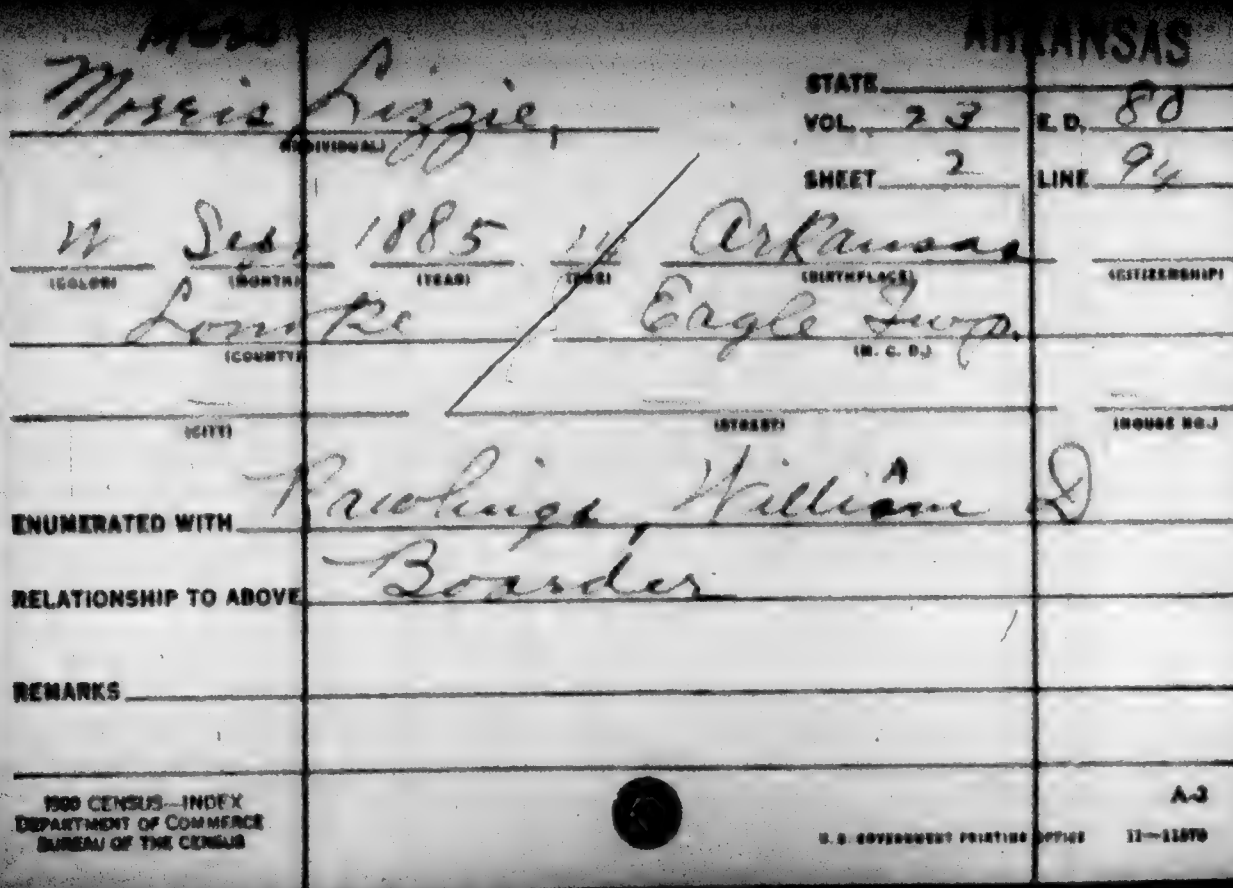 M620 ARKANSAS
Morris, Lizzie, STATE
(INDIVIDUAL) VOL. 23 E.D. 80
SHEET 2 LINE 94
W Sept 1885 14 Arkansas
(COLOR) (MONTH) (YEAR) (AGE) (BIRTHPLACE) (CITIZENSHIP)
Lonoke Eagle Twp.
(COUNTY) (M. C. D.)
(CITY) (STREET) (HOUSE NO.)
A
ENUMERATED WITH Rawlings, William D
RELATIONSHIP TO ABOVE Boarder
REMARKS
1900 CENSUS—INDEX
DEPARTMENT OF COMMERCE
BUREAU OF THE CENSUS
A-3
U.S. GOVERNMENT PRINTING OFFICE